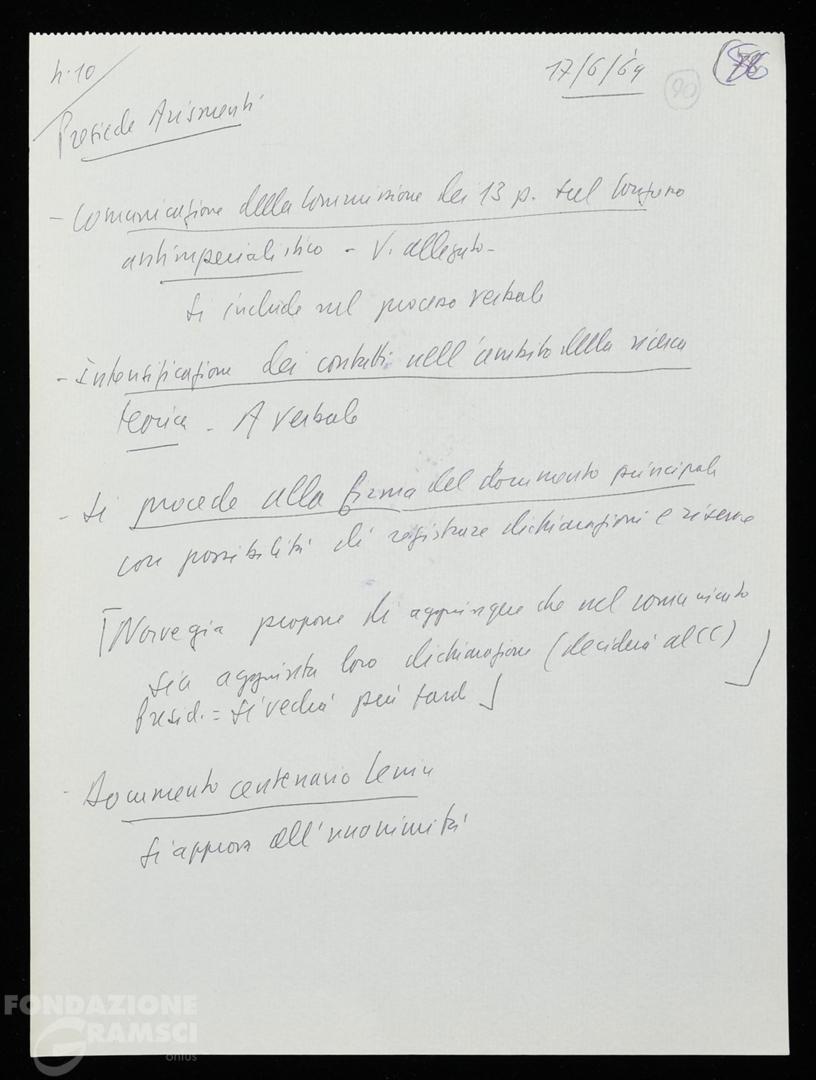 h. 10
17/6/69
90
Presiede Arismendi
- Comunicazione della Commissione dei 13 p. sul Congresso
antimperialistico - V. allegato -
Si include nel processo verbale
- Intensificazione dei contatti nell'ambito della ricerca
teorica - A verbale
- Si procede alla firma del documento principale
con possibilità di registrare dichiarazioni e riserve
[Norvegia propone di aggiungere che nel comunicato
sia aggiunta loro dichiarazione (deciderà al CC)
Presid. = Si vedrà più tardi]
- Documento centenario Lenin
Si approva all'unanimità
FONDAZIONE
GRAMSCI
onlus